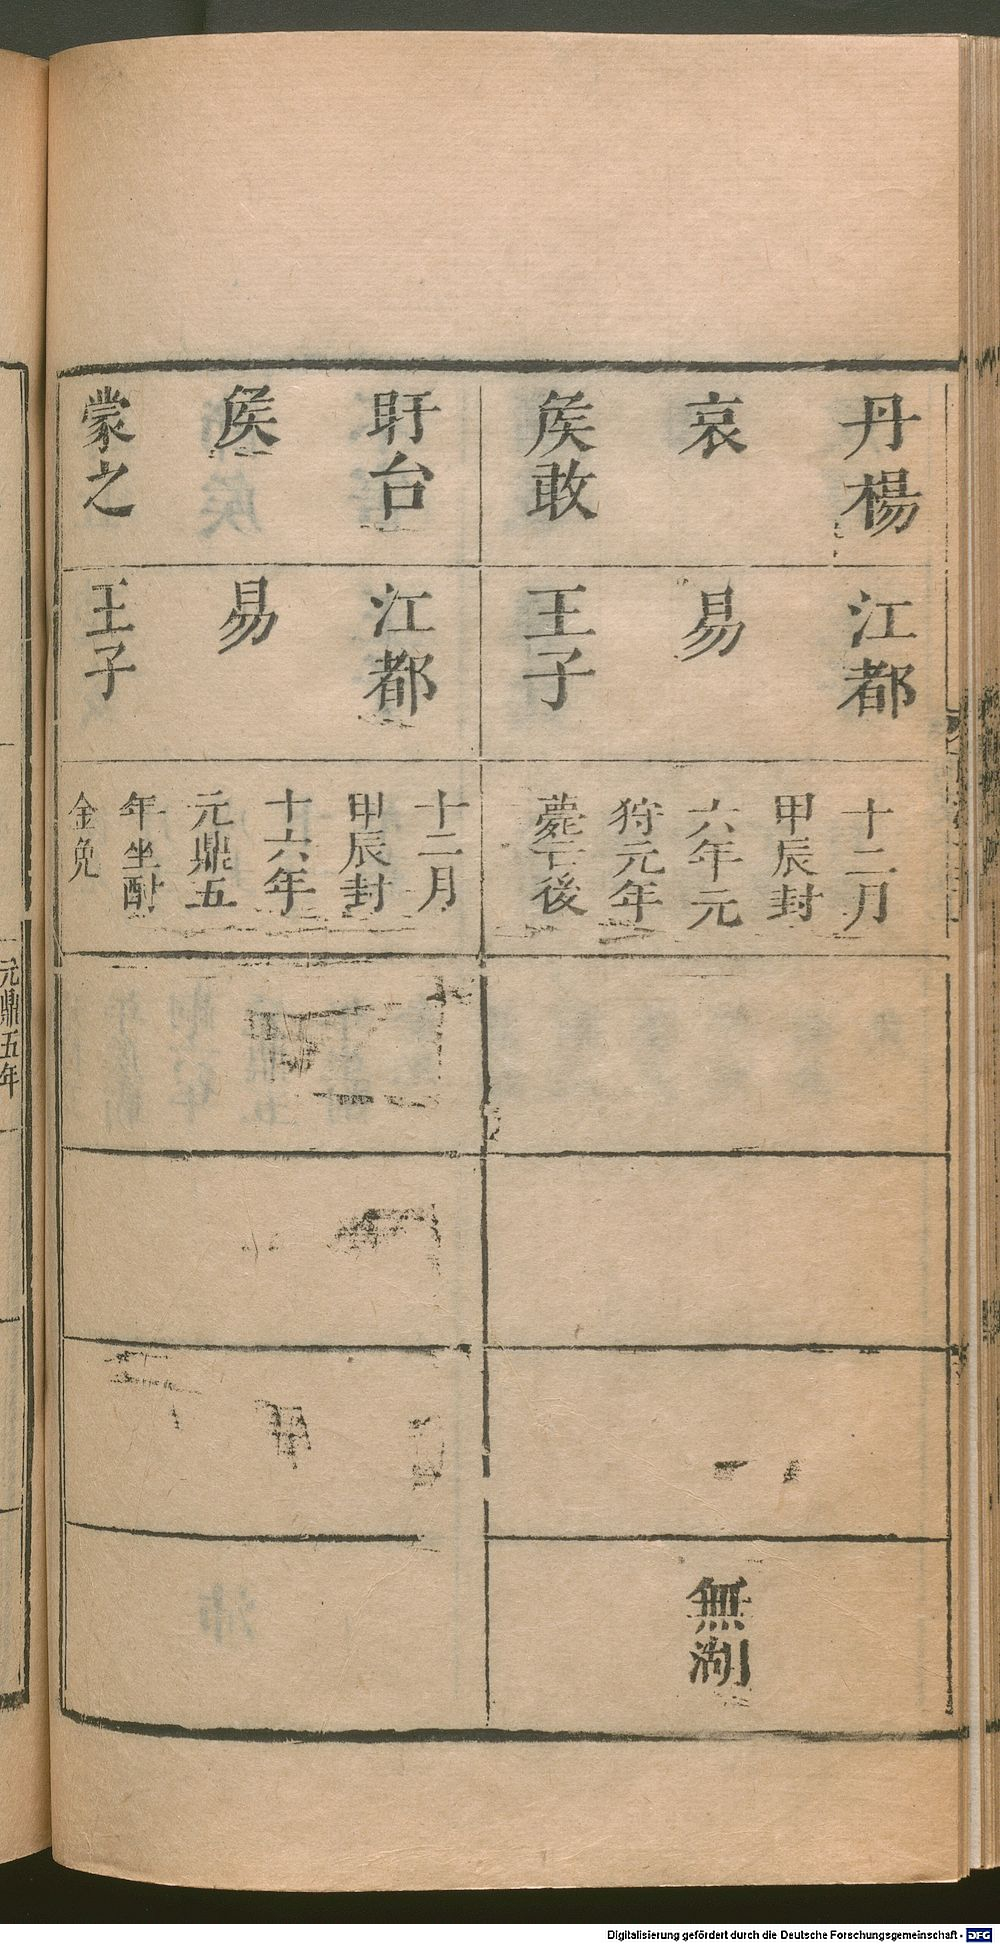 丹楊
哀
侯敢
江都
易
王子
十二月
甲辰封
六年元
狩元年
薨亡後
無湖
盱台
侯
蒙之
江都
易
王子
十二月
甲辰封
十六年
元鼎五
年坐酎
金免
元鼎五年
Digitalisierung gefördert durch die Deutsche Forschungsgemeinschaft - DFG